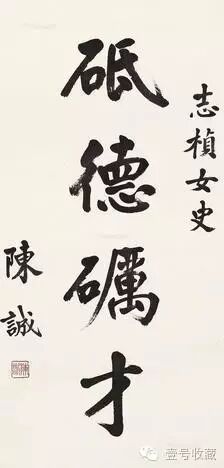 志楨女史
砥德礪才
陳誠
壹号收藏